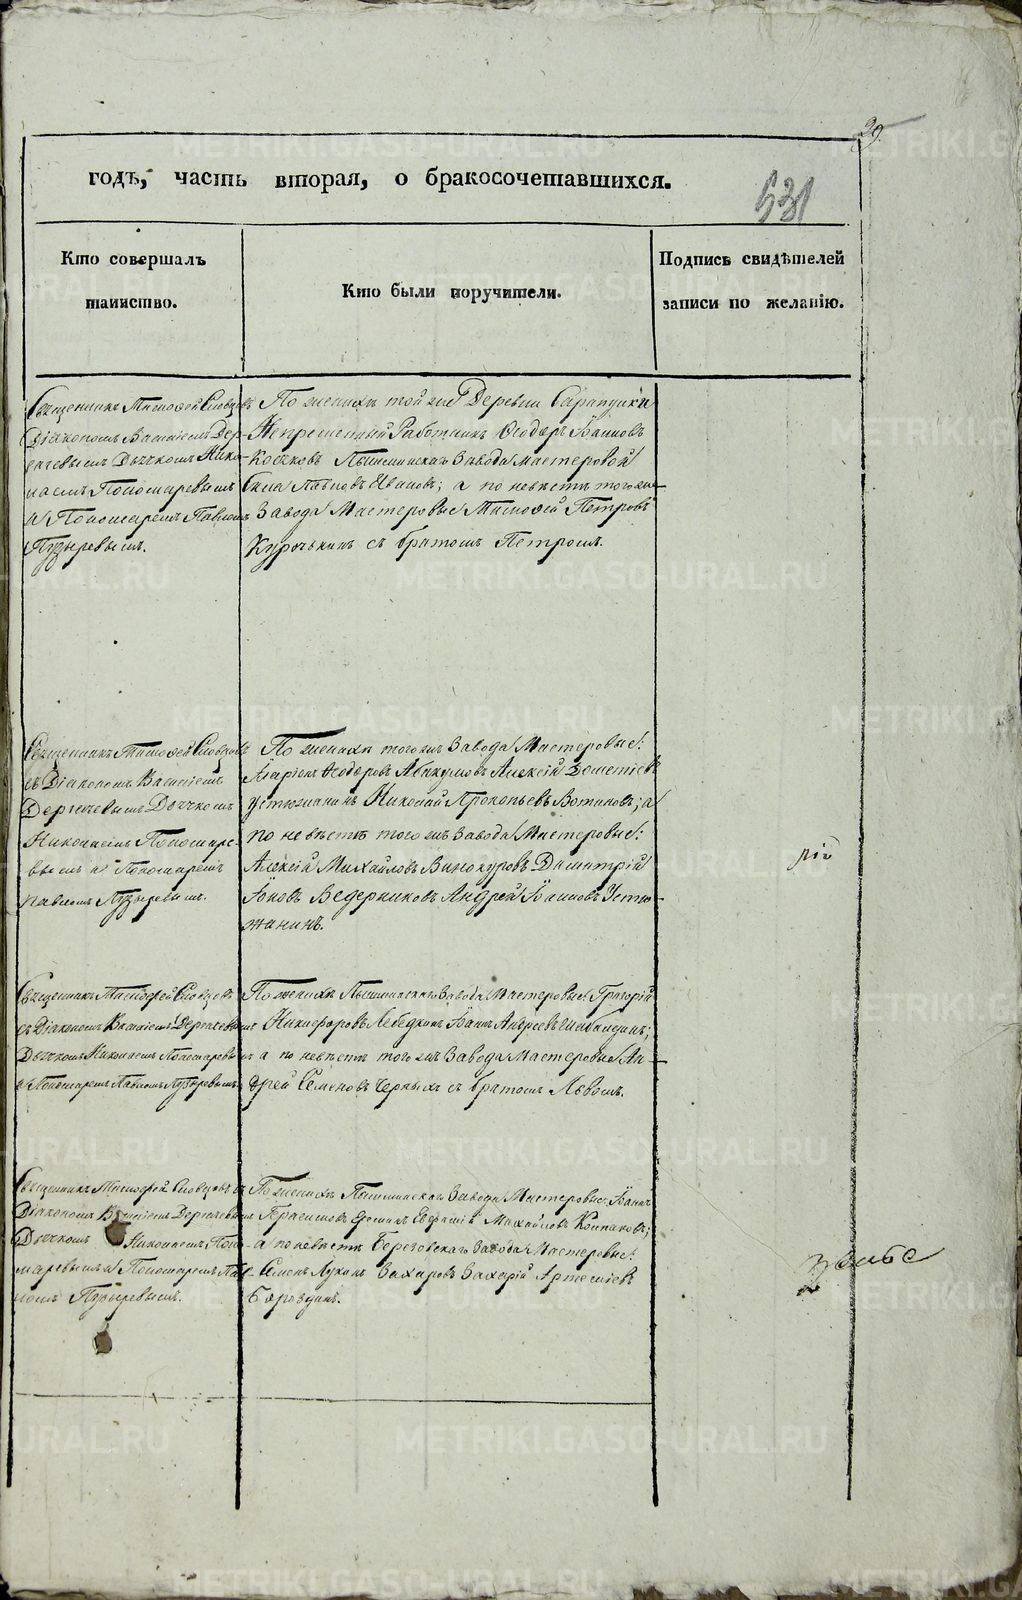 29
годѣ, часть вторая, о бракосочетавшихся.
531
Кто совершалъ
таинство.
Кто были поручители.
Подпись свидѣтелей
записи по желанію.
Священникъ Тимофей Словцовъ съ
Діакономъ Василіемъ Дер-
гачевымъ Дьячкомъ Нико-
лаемъ Пономаревымъ
и Пономаремъ Павломъ
Пузыревымъ.
По женихѣ той же Деревни Сарапулки
Непремѣнный Работникъ Ѳеодоръ Іоанновъ
Костковъ Пышминскаго Завода мастеровой
Иванов; а по невѣстѣ того же
Завода Мастеровые Тимофей Петровъ
Курочькинъ съ братомъ Петромъ.
Священникъ Тимофей Словцовъ
съ Діакономъ Василіемъ
Дергачевымъ Дьячкомъ
Николаемъ Пономаре-
вымъ и Пономаремъ
Павломъ Пузыревымъ.
По женихѣ того же Завода Мастеровые:
Ѳеодоровъ Абакумовъ Алексѣй Дементіевъ
Устюжанинъ Николай Прокопьевъ Вотиновъ; а
по невѣстѣ того же Завода Мастеровые:
Алексѣй Михайловъ Винокуровъ Димитрій
Іовъ Ведерниковъ Андрей Іоанновъ Устю-
жанинъ.
рій
Священникъ Тимофей Словцовъ
съ Діакономъ Василіемъ Дергачевымъ
Дьячкомъ Николаемъ Пономаревымъ
и Пономаремъ Павломъ Пузыревымъ.
По женихѣ Пышминскаго Завода Мастеровые Григорій
Никифоровъ Лебедкинъ Іоаннъ Андреевъ Шабалдинъ;
а по невѣстѣ того же Завода Мастеровые Ан-
дрей Семеновъ Черныхъ съ братомъ Львомъ.
Священникъ Тимофей Словцовъ съ
Діакономъ Василіемъ Дергачевымъ
Дьячкомъ Николаемъ Поно-
маревымъ и Пономаремъ Пав-
ломъ Пузыревымъ.
По женихѣ Пышминскаго Завода Мастеровые Іоаннъ
Герасимовъ Евфимій Михайловъ Колпаковъ;
а по невѣстѣ Березовскаго Завода Мастеровые:
Семенъ Лукинъ Захаровъ Захарій Артеміевъ
Бороздинъ.
METRIKI.GASO-URAL.RU